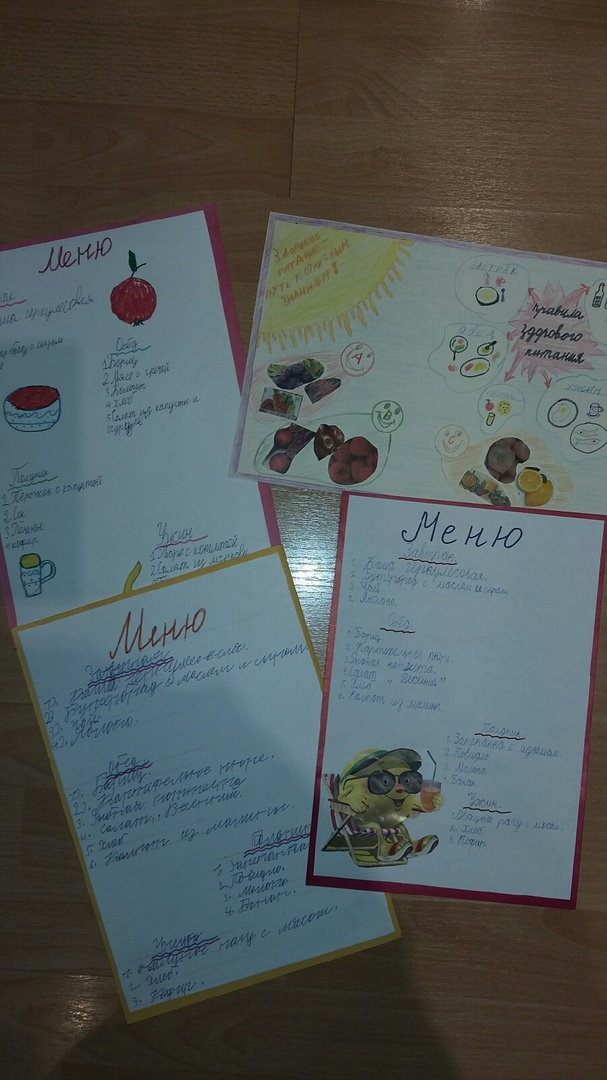 Меню
каша геркулесовая
Обед
1. Борщ
2. Мясо с гречей
3. Компот
4. Хлеб
5. Салат из капусты и
огурцов
Полдник
1. Пирожок с капустой
2. Сок
3. Печенье
4. кефир
Ужин
1. Пюре с котлетой
2. Салат из моркови
Здоровое
питание -
путь к отличным
знаниям!
Завтрак
Обед
Ужин
Правила
здорового
питания
А
В
С
Меню
Завтрак
1. Каша геркулесовая.
2. Бутерброд с маслом и сыром.
3. Чай.
4. Яблоко.
Обед
1. Борщ.
2. Картофельное пюре.
3. Рыбная котлета.
4. Салат "Весенний".
5. Хлеб.
6. Компот из малины.
Полдник
1. Запеканка
2. Повидло.
3. Молоко.
4. Банан.
Ужин
1. Овощное рагу с мясом.
2. Хлеб.
3. Кефир.
Меню
Завтрак
1. Каша геркулесовая.
2. Бутерброд с маслом и сыром
3. Чай
4. Яблоко.
Обед
1. Борщ.
2. Картофельное пюре.
3. Рыбная котлета.
4. Салат "Весенний"
5. Хлеб
6. Компот из малины.
Полдник
1. Запеканка с изюмом.
2. Повидло
3. Молоко
4. Банан.
Ужин.
1. Овощное рагу с мясом.
2. Хлеб
3. Кефир.